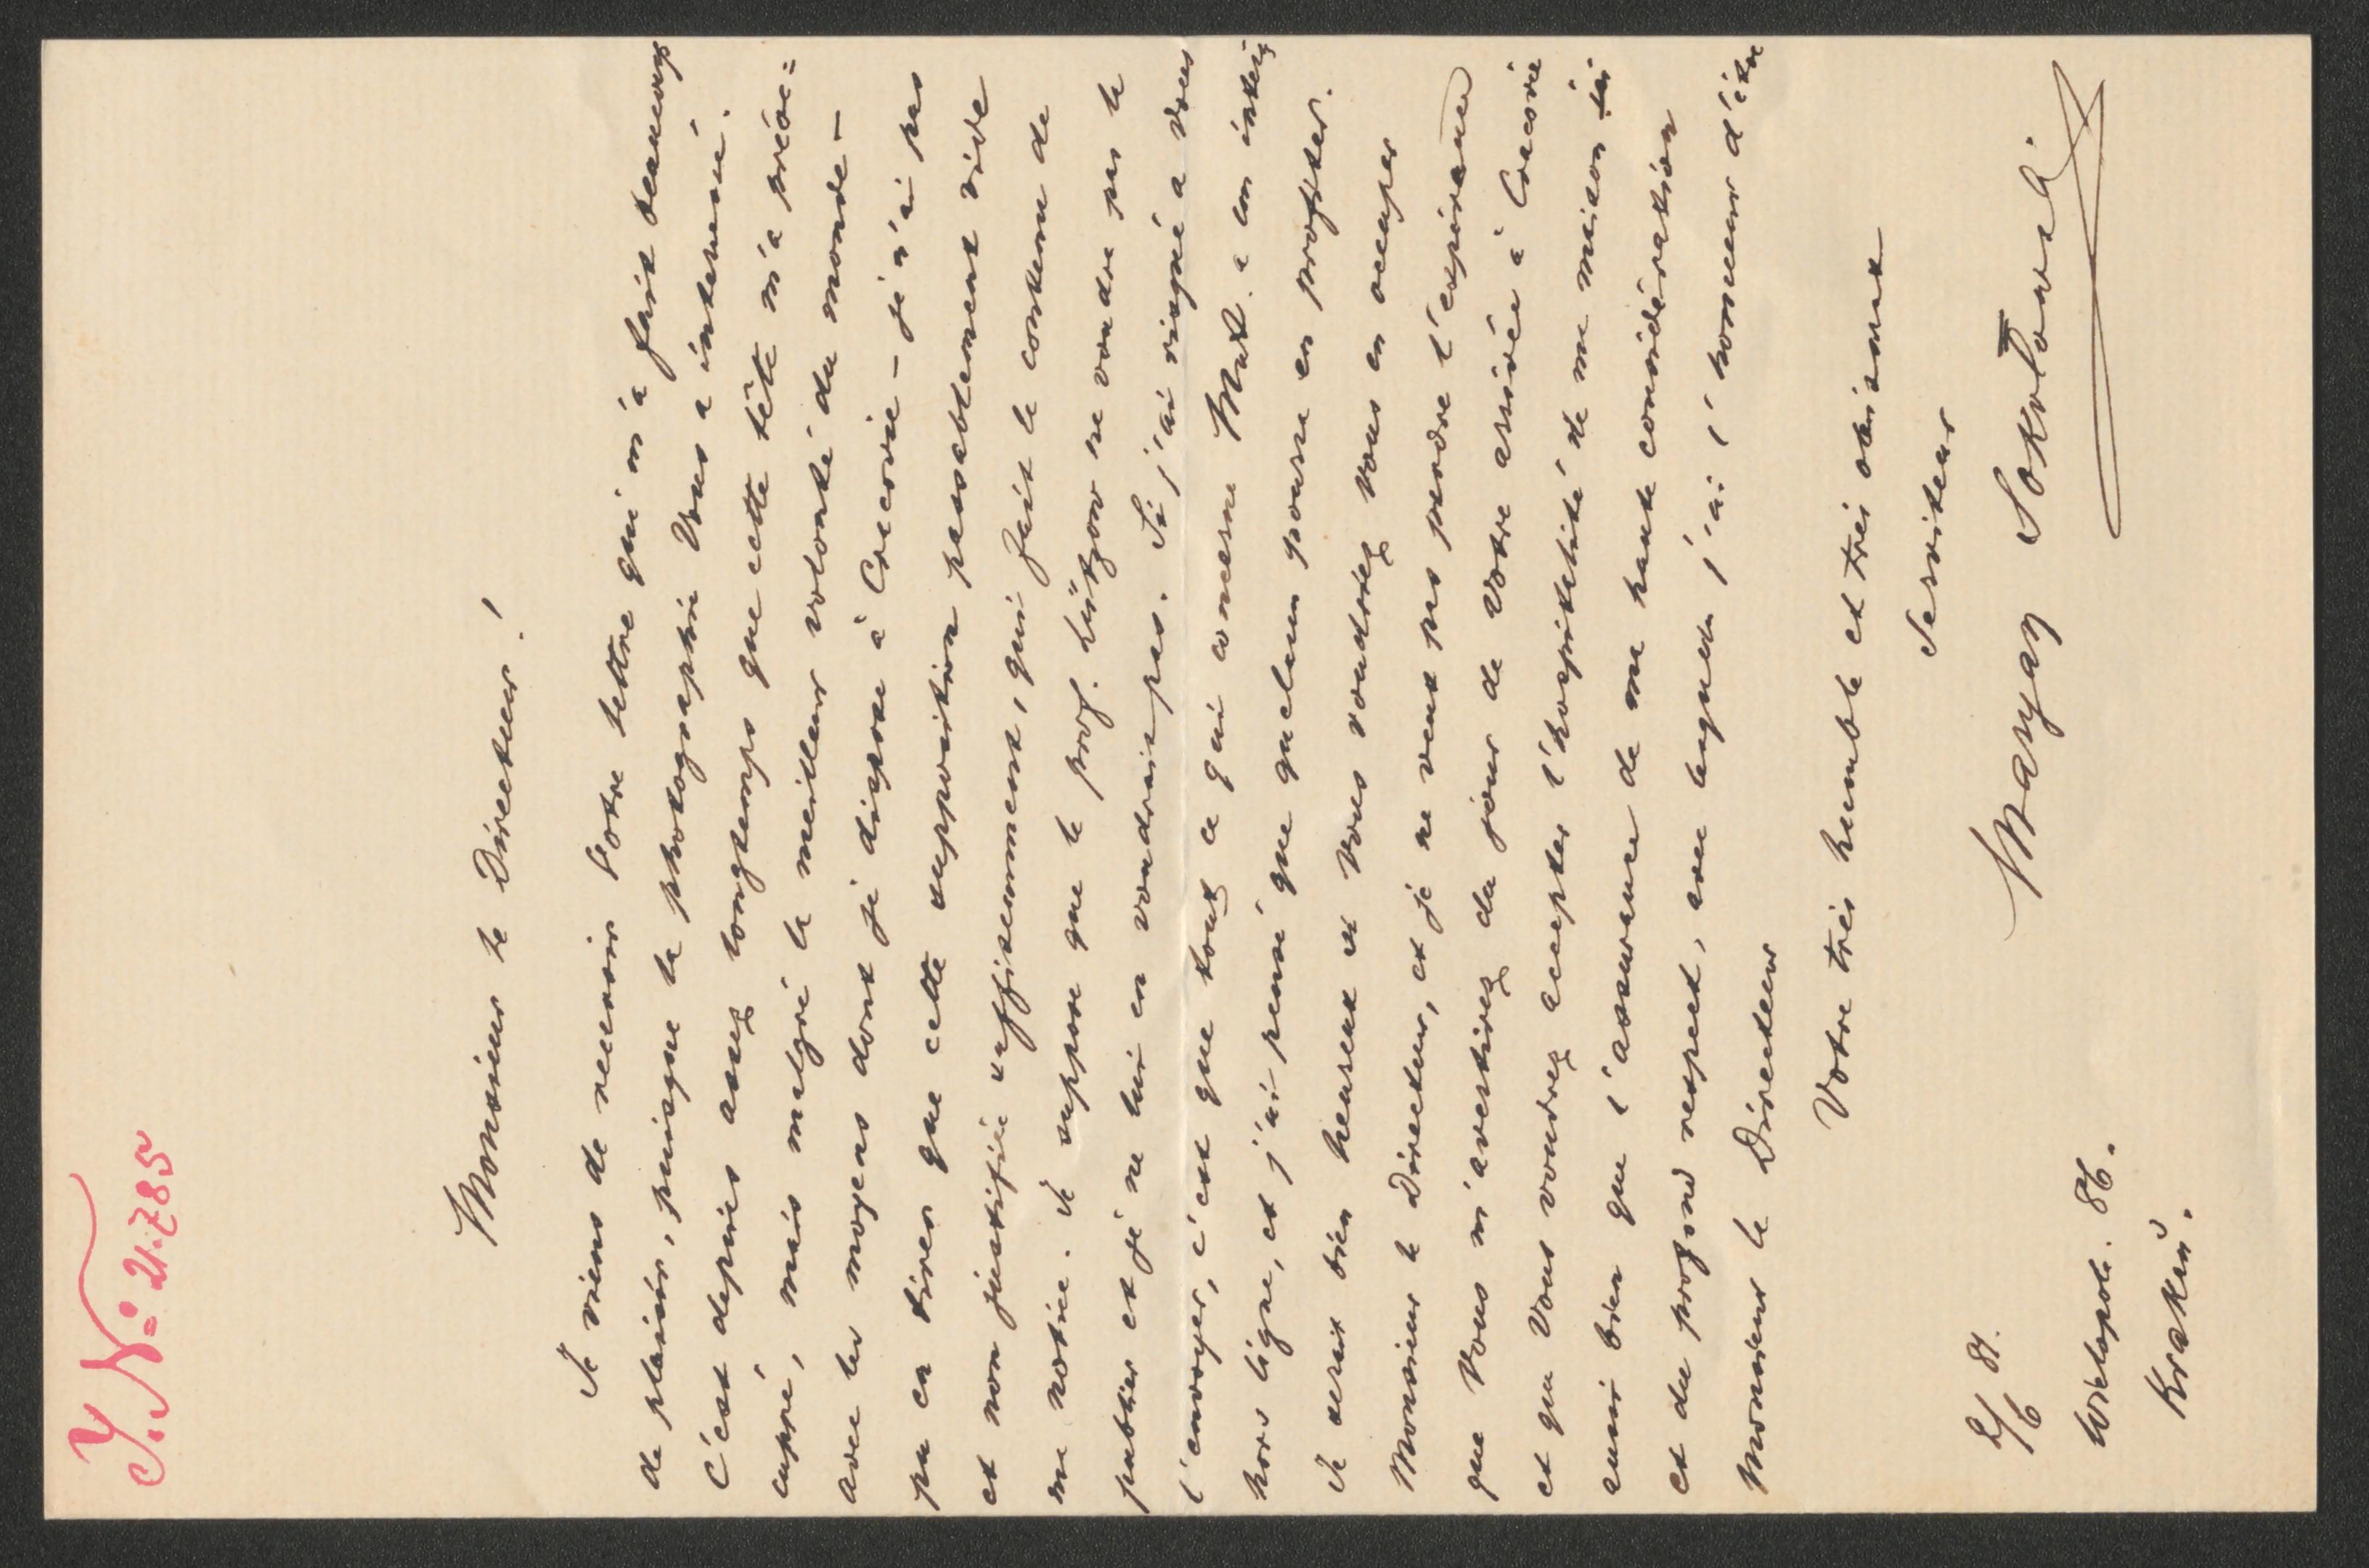 J. N: 21.785
Monsieur le Directeur!
Je viens de recevoir Votre lettre qui m'a fait beaucoup
de plaisir, puisque la photographie Vous a interessé.
C'est depuis assez longtemps que cette tête m'a préoc=
cuppé, mais malgré la meilleur volonté du monde –
avec les moyens dont je dispose à Cracovie – je n'ai pas
pu en tirer que cette supposition passablement vide
et non justifiée suffisamment, qui fait le contenu de
ma notice. Je suppose que le prof. Lützow ne voudra pas la
publier et je ne lui en voudrais pas. Si j'ai risqué a vous
l'envoyer, c'est que tout ce qui concerne a un intérêt
hors ligne, et j'ai pensé que quelcun pourra en profiter.
Je serais bien heureux si Vous voudrez Vous en occuper
Monsieur le Directeur, et je ne veux pas perdre l'espérance
que Vous m'avertirez du jour de Votre arrivée à Cracovie
et que Vous voudrez accepter l'hospitalité de ma maison
aussi bien que l'assurance de ma haute considération
et du profond respect, avec lequel j'ai l'honneur d'être
Monsieur le Directeur
Votre très humble et très obéissant
Serviteur
Maryan Sokołowski.
2/6 81.
Wielopole. 86.
Krakau.